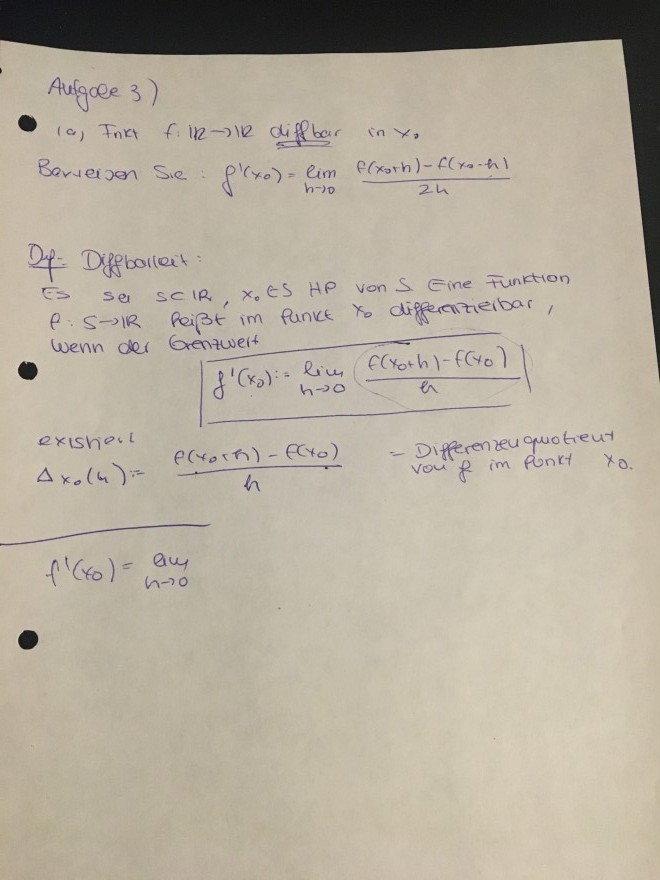 Aufgabe 3)
(a) Fnkt f: ℝ→ℝ diffbar in x₀
Beweisen Sie: f'(x₀) = lim h→0 (f(x₀+h) - f(x₀-h)) / 2h
Def: Diffbarkeit:
Es sei S⊂ℝ, x₀∈S HP von S. Eine Funktion
f: S→ℝ heißt im Punkt x₀ differenzierbar,
wenn der Grenzwert
f'(x₀) := lim h→0 (f(x₀+h) - f(x₀)) / h
existiert
Δx₀(h) := (f(x₀+h) - f(x₀)) / h = Differenzenquotient
von f im Punkt x₀.
f'(x₀) = lim h→0